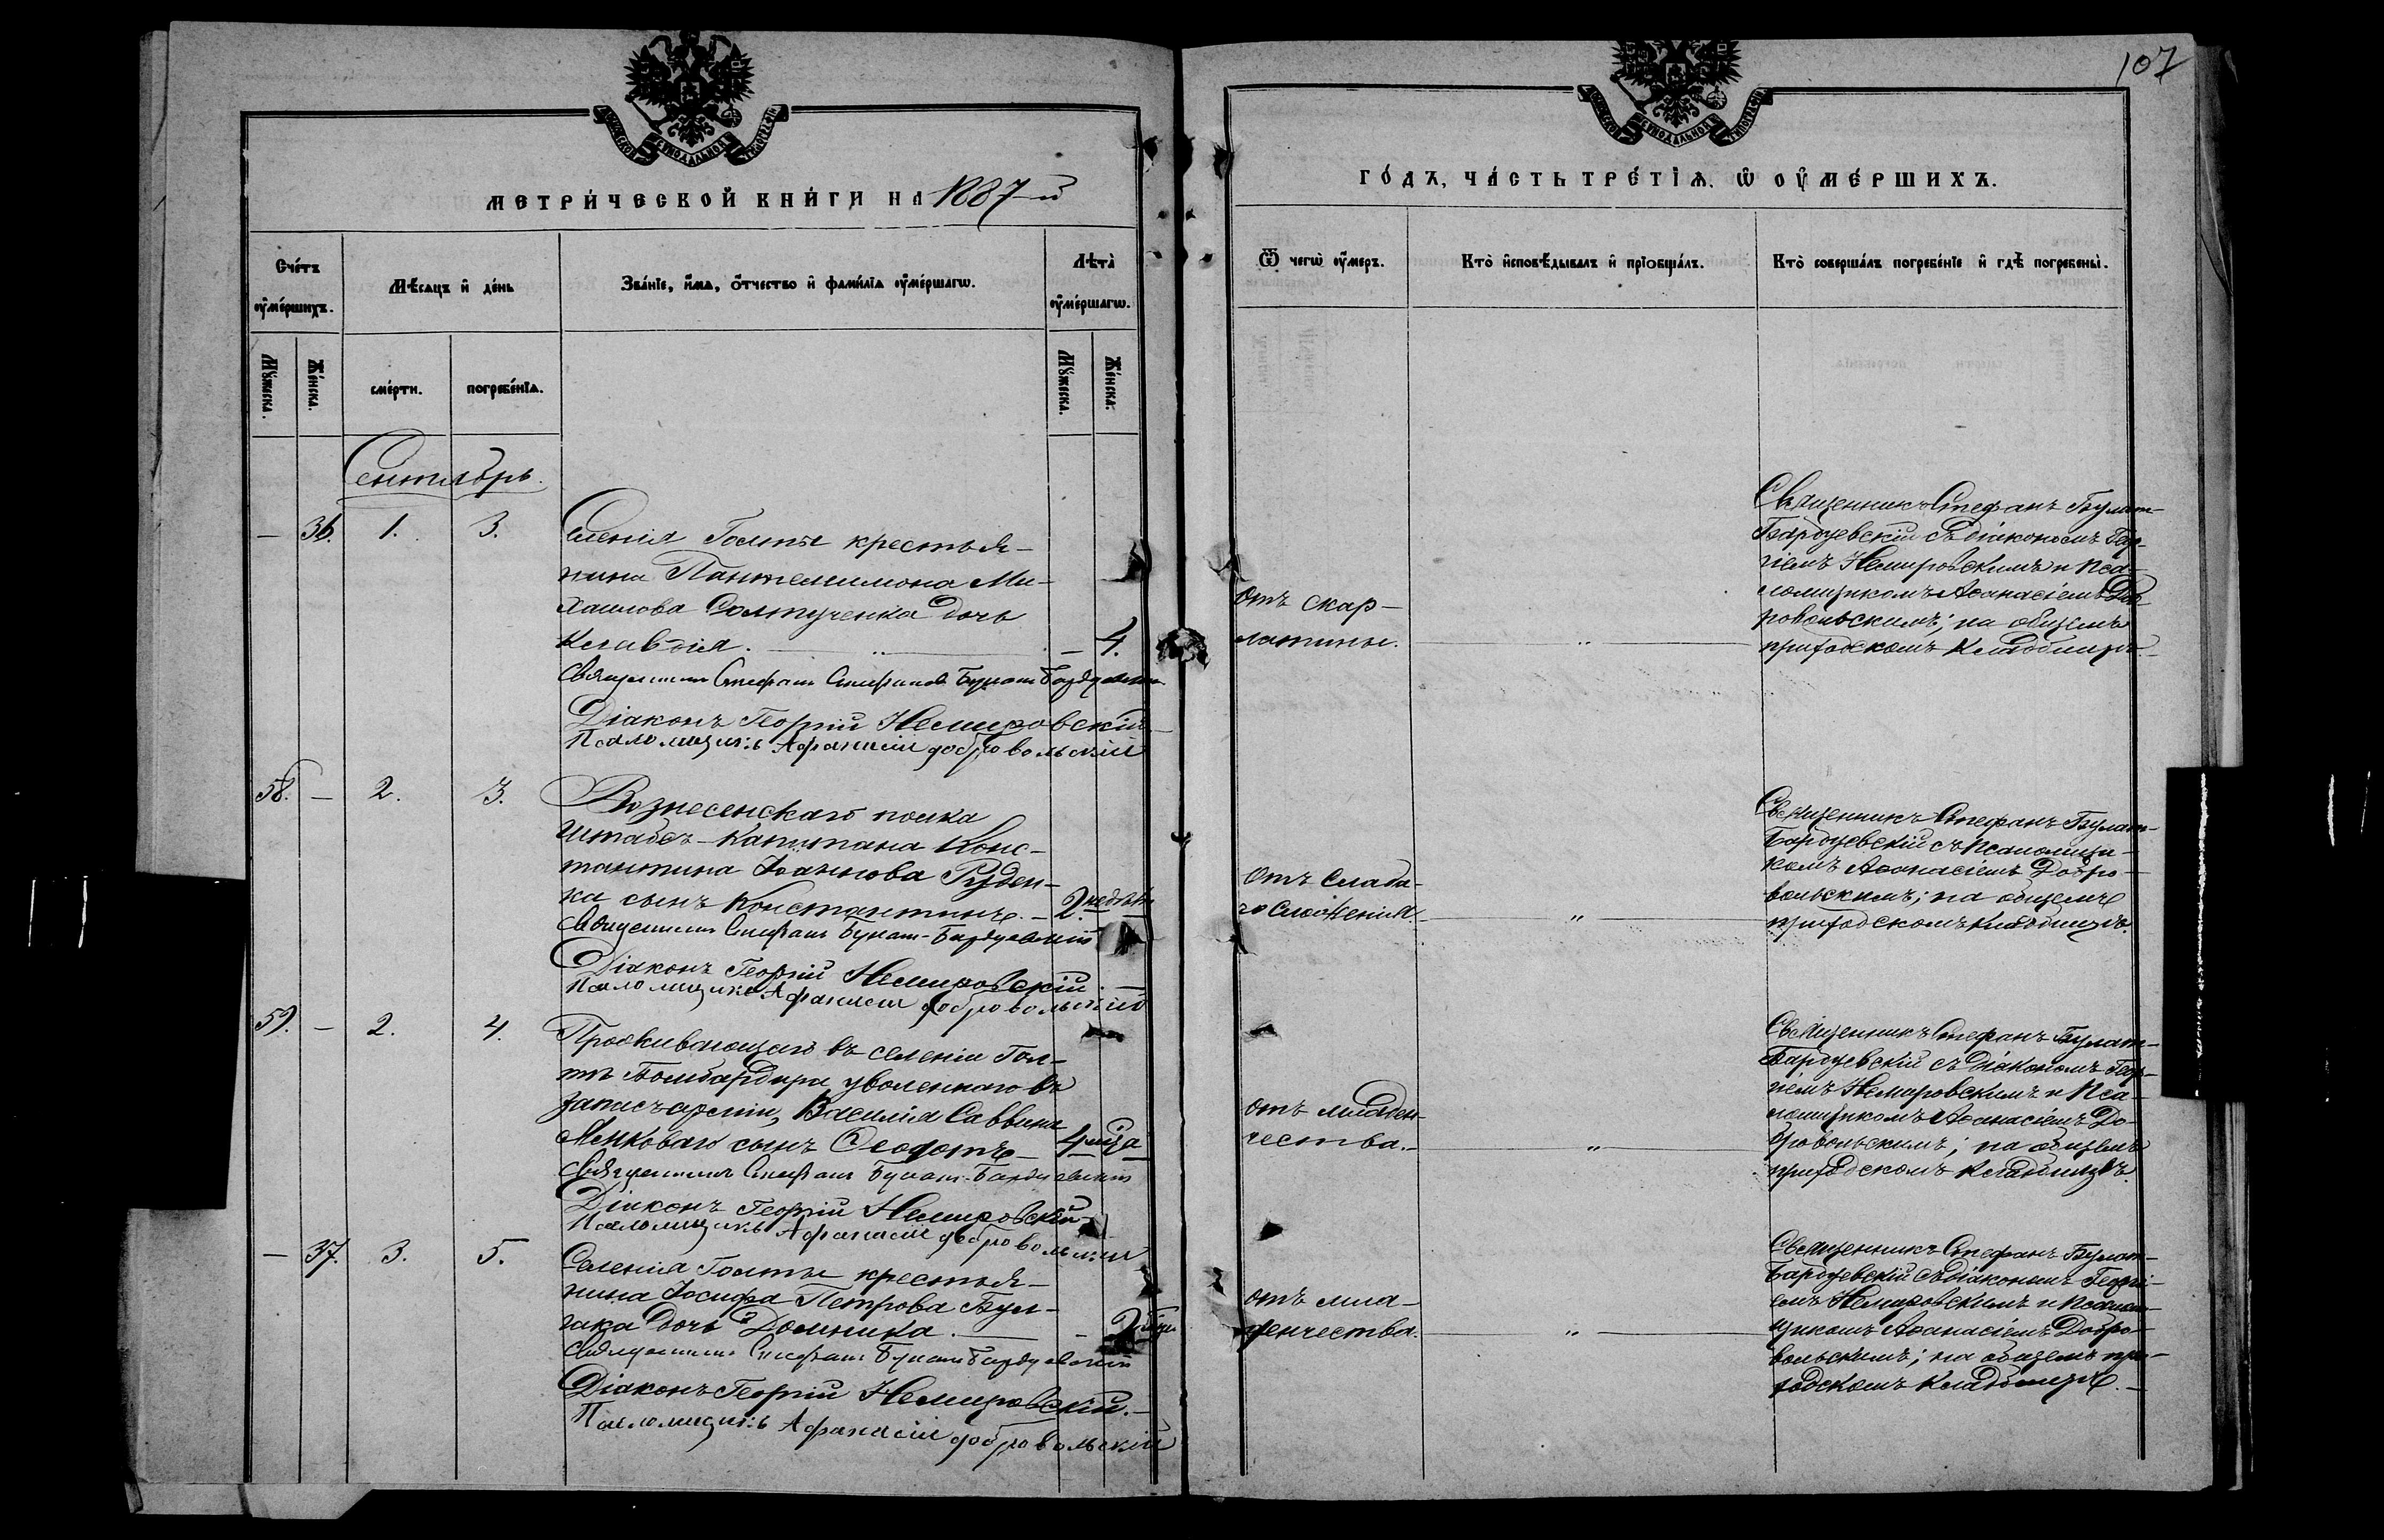 107
МЕТРИ́ЧЕСКОЙ КНИ́ГИ НА 1887-й
ГО́ДЪ, ЧА́СТЬ ТРЕ́ТІѦ, Ѡ ОУ҆МЕ́РШИХЪ.
Сче́тъ оу҆ме́ршихъ.
Мѣ́сяцъ и҆ де́нь
Зва́нїе, и҆́мѧ, ѻ҆́тчество и҆ фами́лїѧ оу҆ме́ршагѡ.
Лѣта̀ оу҆ме́ршагѡ.
Мꙋ́жеска.
Же́нска.
сме́рти.
погребе́нїѧ.
Мꙋ́жеска.
Же́нска.
Ѿ чегѡ̀ оу҆́меръ.
Кто̀ и҆сповѣ́дывалъ и҆ прїѡбща́лъ.
Кто̀ соверша́лъ погребе́нїе и҆ гдѣ̀ погребены̀.
Сентябрь.
— 36. 1. 3.
Селенія Голты крестья-
нина Пантелимона Ми-
хаилова Солтученка дочь
Клавдія. — 4.
Священникъ Стефанъ Булат-Бардуевскій
Діаконъ Георгій Немировскій
Псаломщикъ Афанасій Добровольскій
отъ скар-
латины.
Священникъ Стефанъ Булат-
Бардуевскій съ діакономъ Геор-
гіемъ Немировскимъ и Пса-
ломщикомъ Аѳанасіемъ Доб-
ровольскимъ; на общемъ
приходскомъ кладбищѣ.
58. — 2. 3.
Вознесенскаго полка
Штабсъ-Капитана Конс-
тантина Іоаннова Руден-
ка сынъ Константинъ. — 2 недѣли
Священникъ Стефанъ Булат-Бардуевскій
Діаконъ Георгій Немировскій. —
Псаломщикъ Афанасій Добровольскій
отъ слаба-
го сложенія
Священникъ Стефанъ Булат-
Бардуевскій съ Псаломщи-
комъ Аѳанасіемъ Добро-
вольскимъ; на общемъ
приходскомъ кладбищѣ.
59. — 2. 4.
Проживающаго въ селеніи Гол-
тѣ Бомбардира, уволеннаго въ
запасъ арміи, Василія Саввина
сынъ Ѳеодотъ — 4 м-ца
Священникъ Стефанъ Булат-Бардуевскій
Діаконъ Георгій Немировскій
Псаломщикъ Афанасій Добровольскій
отъ младен-
чества.
Священникъ Стефанъ Булат-
Бардуевскій съ Діакономъ Геор-
гіемъ Немировскимъ и Пса-
ломщикомъ Аѳанасіемъ До-
бровольскимъ; на общемъ
приходскомъ кладбищѣ.
— 37. 3. 5.
Селенія Голты крестья-
нина Іосифа Петрова Бул-
гака дочь Домника. — 2
Священникъ Стефанъ Булат-Бардуевскій
Діаконъ Георгій Немировскій. —
Псаломщикъ Афанасій Добровольскій
отъ мла-
денчества.
Священникъ Стефанъ Булат-
Бардуевскій съ діакономъ Георгі-
емъ Немировскимъ и Псалом-
щикомъ Аѳанасіемъ Добро-
вольскимъ; на общемъ при-
ходскомъ кладбищѣ. —